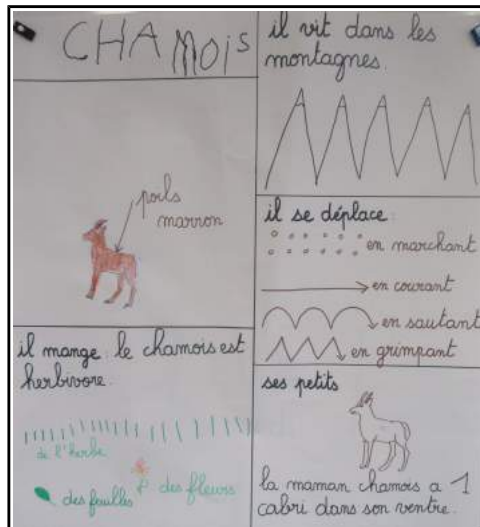 CHAMOIS
poils
marron
il mange : le chamois est
herbivore.
de l'herbe
des feuilles
des fleurs
il vit dans les
montagnes.
il se déplace :
en marchant
en courant
en sautant
en grimpant
ses petits
la maman chamois a 1
cabri dans son ventre.